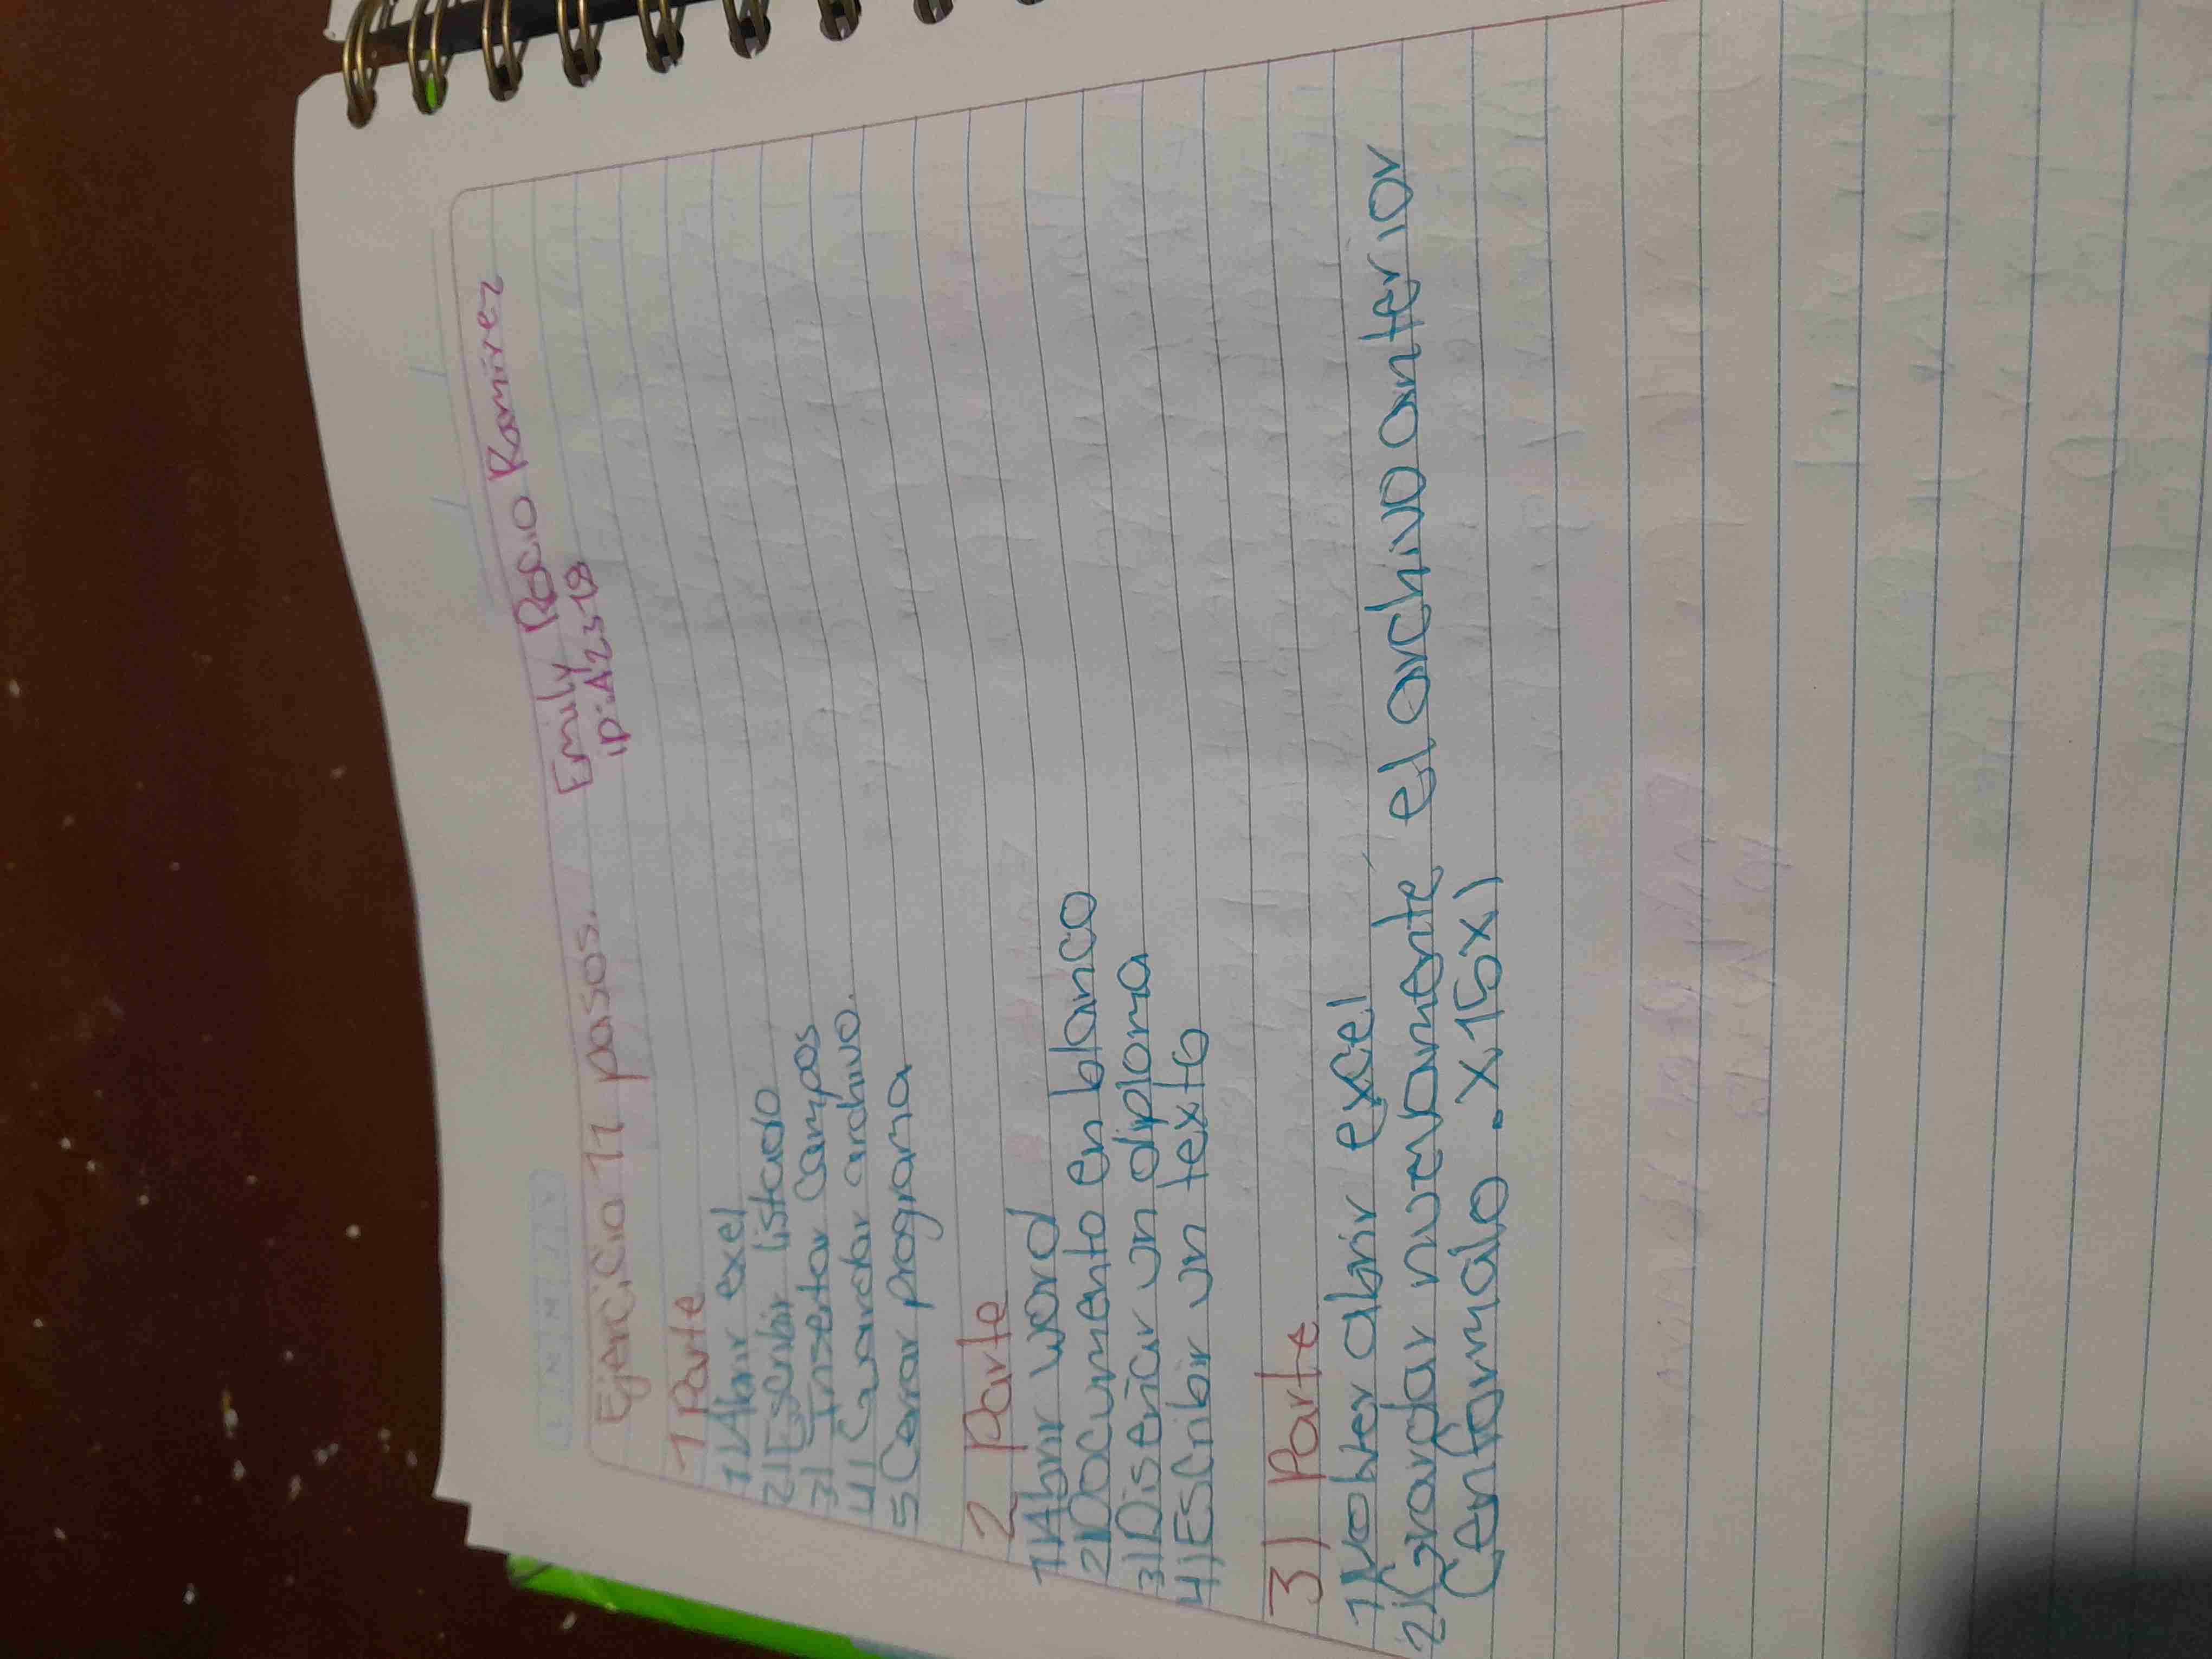 Ejercicio 11 pasos.
Emily Rocio Ramirez
ip: A23-18
1 Parte
1) Abrir exel
2) Escribir listado
3) Insertar Campos
4) Guardar archivo.
5 Cerrar programa
2 Parte
1) Abrir word
2) Documento en blanco
3) Diseñar un diploma
4) Escribir un texto
3) Parte
1) Volver abrir excel
2) Grardar nuevamente el archivo anterior
(enformato .x15x)